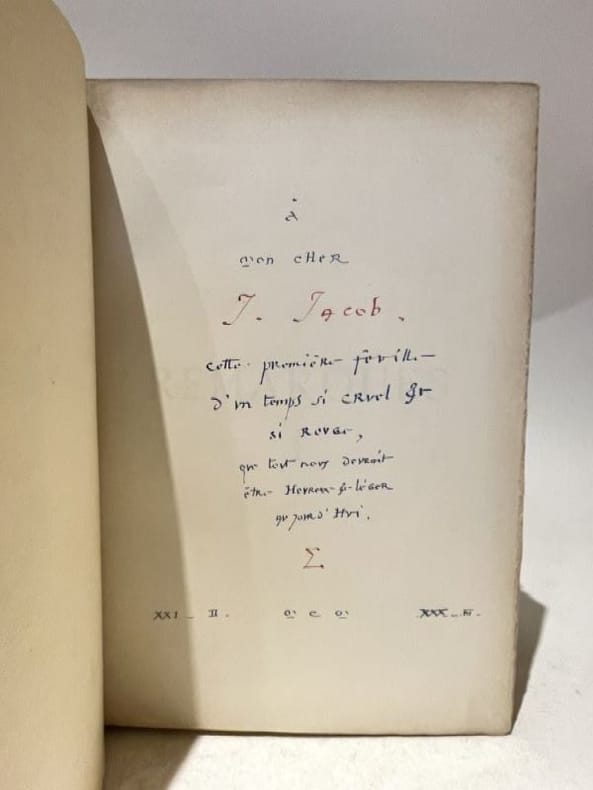 à
mon cHeR
J. Jacob.
cette première feville
d'vn temps si cRvel &
si Rovge,
qve tovt novs devRait
être HevReux & léGeR
avjovRd'Hvi.
Σ
XXI _ II. m c m XXX _